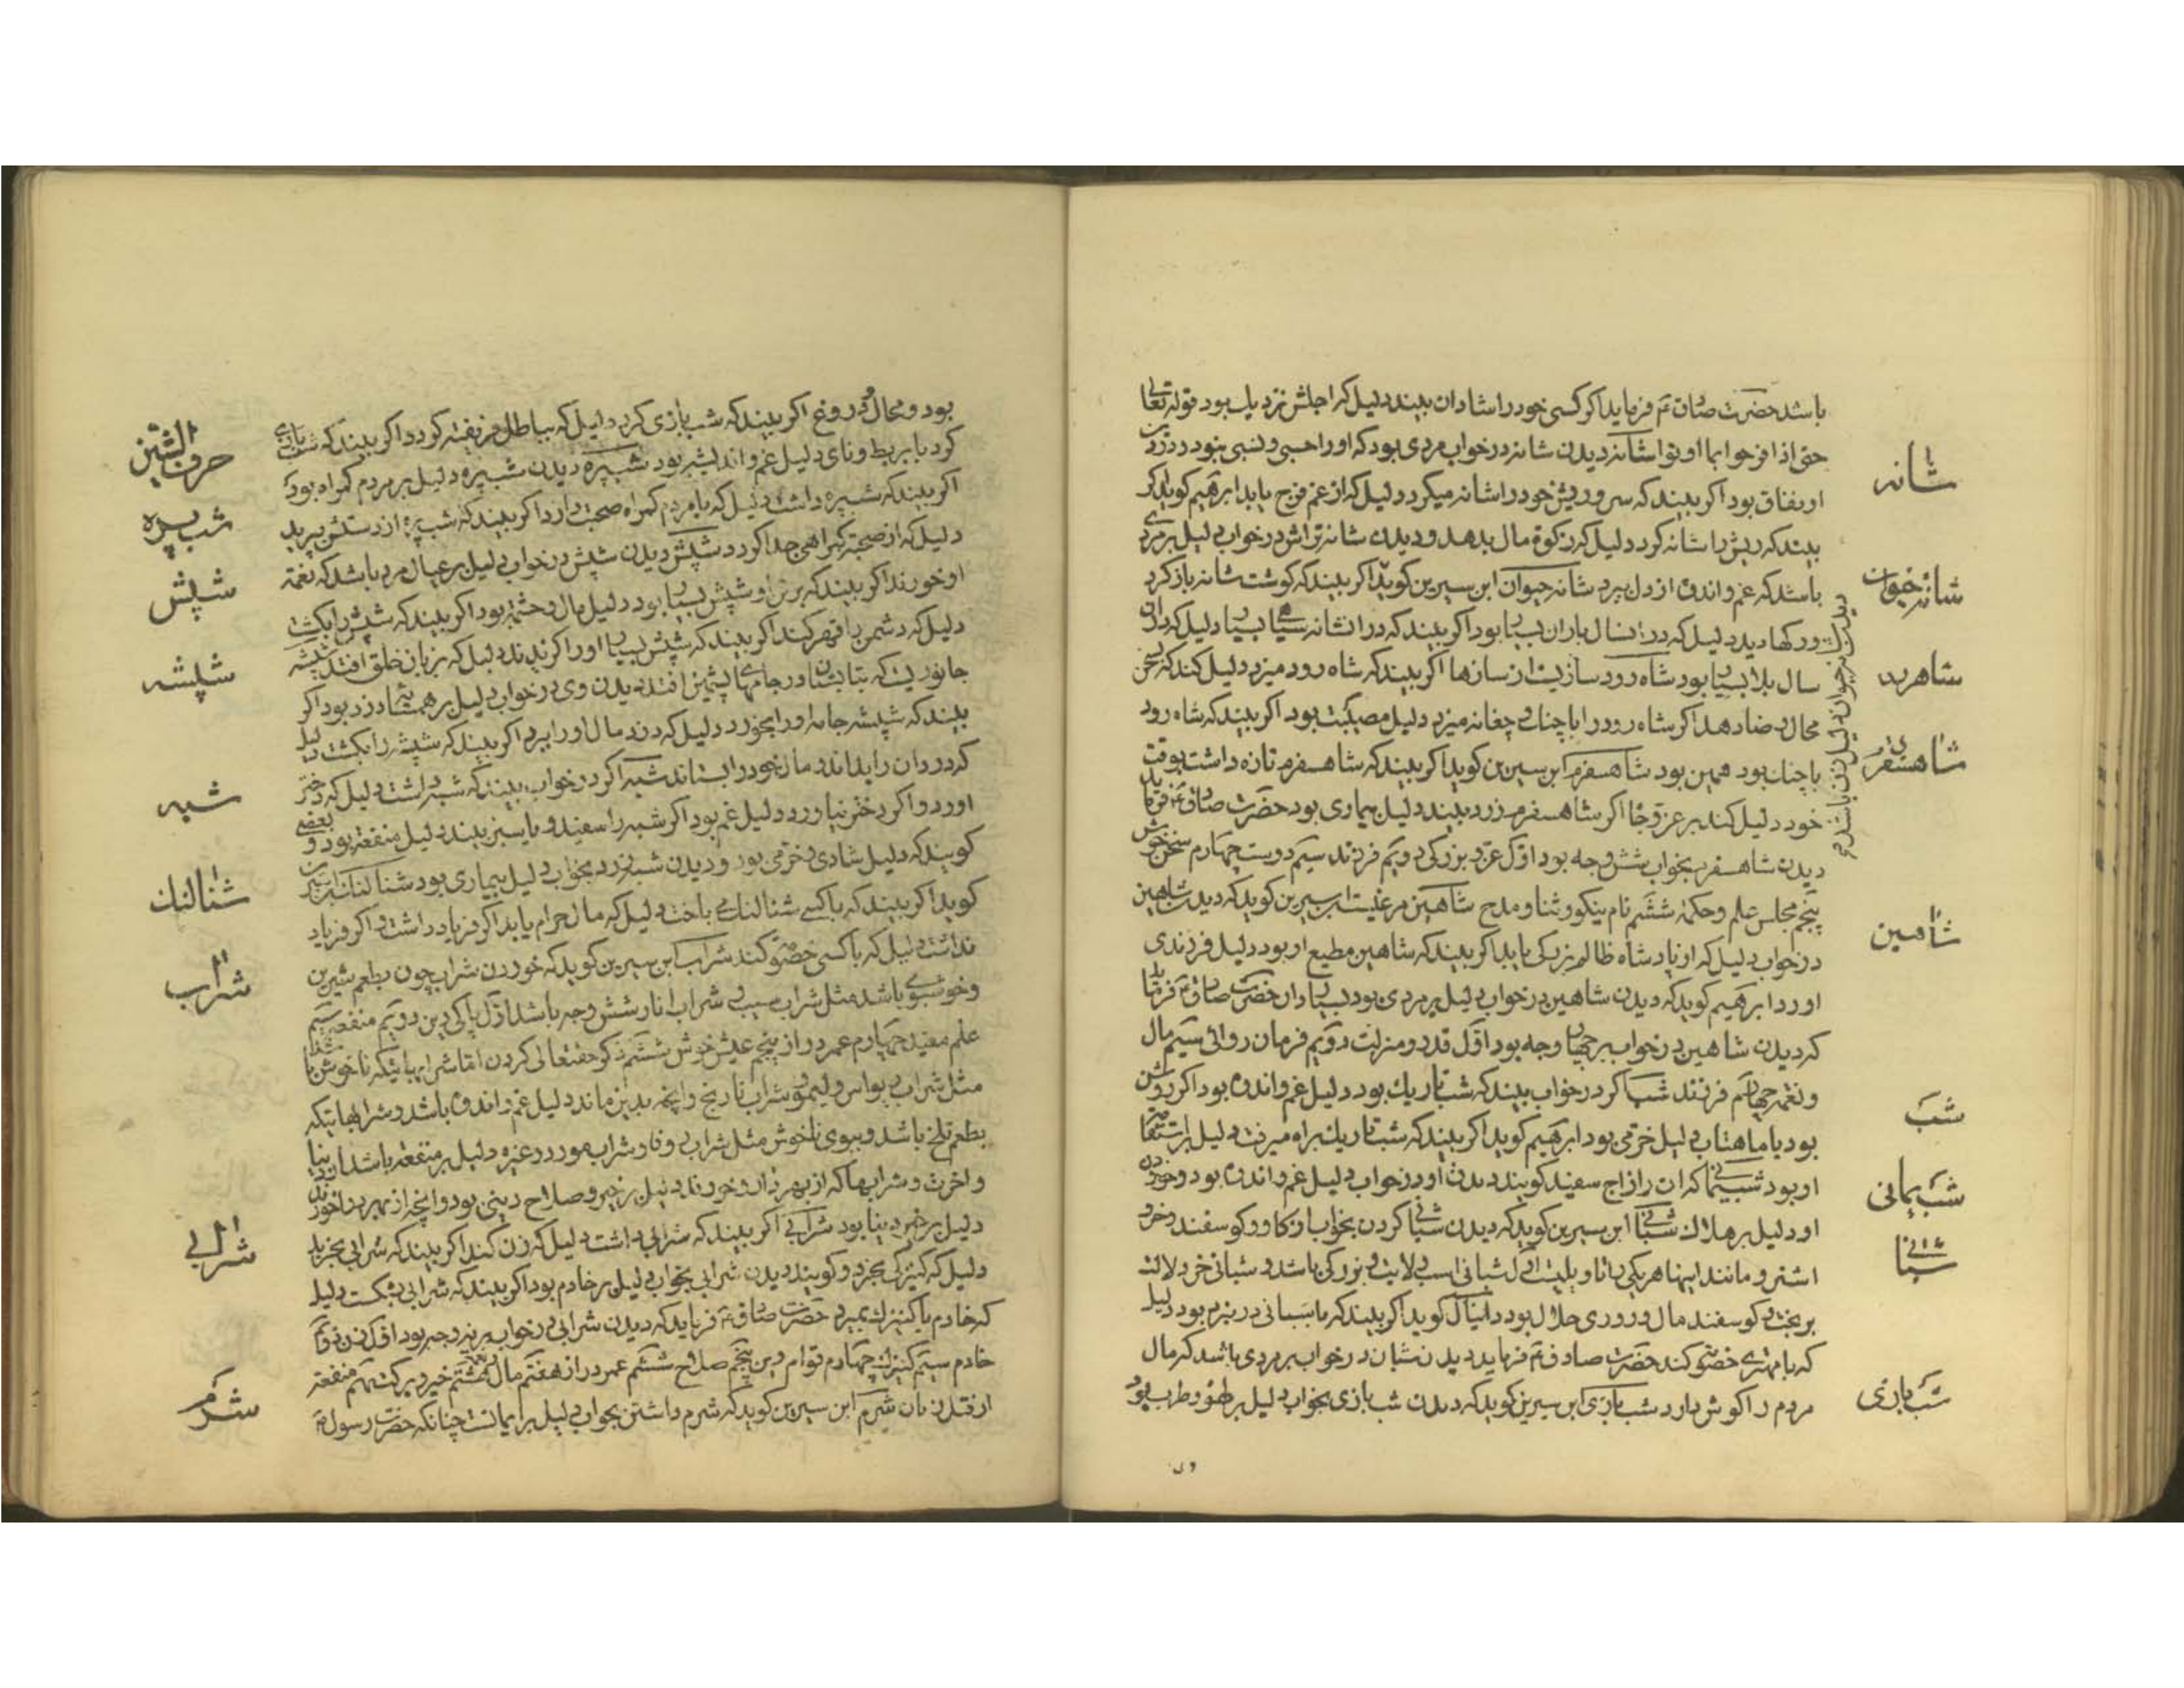 باشد حضرت صادق ع فرماید اکر کسی خود را شادان بیند دلیل که اجلش نزدیک بود قوله تعالی
حتی اذا فرحوا بما اوتوا شانه دیدن شانه در خواب مردی بود که او را حسبی و نسبی نبود و در
او نفاق بود اکر بیند که سر و ریش خود را شانه میکرد دلیل که از غم فرج یابد ابرهیم کوید اکر
بیند که ریش را شانه کرد دلیل که زکوة مال بدهد و دیدن شانه تراش در خواب دلیل بر مردی
باشد که غم و اندوه از دل ببرد شانه حیوان ابن سیرین کوید اکر بیند که کوشت شانه باز کرد
ورکها دید دلیل که در ان سال باران بسیار بود اکر بیند که در ان شانه سیاهی بسیار دلیل که در ان
سال بلا بسیار بود شاه رود سازیست از سازها اکر بیند که شاه رود میزد دلیل کند که سخن
محال رضا دهد اکر شاه رود را با چنك و چغانه میزد دلیل مصیبت بود اکر بیند که شاه رود
با چنك بود همین بود شاهسفرم ابن سیرین کوید اکر بیند که شاهسفرم تازه داشت بوقت
خود دلیل کند بر عز و جاه اکر شاهسفرم زرد بیند دلیل بیماری بود حضرت صادق ع فرماید
دیدن شاهسفرم بخواب شش وجه بود اول عز و بزرکی دویم فرزند سیم دوست چهارم سخن خوش
پنجم مجلس علم و حکمة ششم نام نیکو و ثنا و مدح شاهین مرغیست ابن سیرین کوید که دیدن شاهین
در خواب دلیل که از پادشاه ظالم بزرکی یابد اکر بیند که شاهین مطیع او بود دلیل فرزندی
اورد ابرهیم کوید که دیدن شاهین در خواب دلیل بر مردی بود حضرت صادق ع فرماید
که دیدن شاهین در خواب بر چهار وجه بود اول قدر و منزلت دویم فرمان روائی سیم مال
و نعمة چهارم فرزند شب اکر در خواب بیند که شب تاریك بود دلیل غم و اندوه بود اکر روشن
بود با ماهتاب دلیل خرمی بود ابرهیم کوید اکر بیند که شب تاریك براه میرفت دلیل بر استقامت
او بود شب یمانی که ان را زاج سفید کویند دیدن او در خواب دلیل غم و اندوه بود و خوردن
او دلیل بر هلاك شبانی ابن سیرین کوید که دیدن شبانی کردن بخواب از کاو و کوسفند و خر و
اشتر و مانند اینها هر یکی را تاویلیست شبانی اسب ولایت و بزرکی باشد و شبانی خر دلالت
بر بخت و کوسفند مال و روزی حلال بود دانیال کوید اکر بیند که با شبانی در نبرد بود دلیل
که با مهتری خصومت کند حضرت صادق ع فرماید دیدن شبان در خواب بر مردی باشد که مال
مردم را کوش دارد شب بازی ابن سیرین کوید که دیدن شب بازی بخواب دلیل بر لهو و طرب بود
شانه
شانه حیوان
شاهرود
شاهسفرم
شاهین
شب
شب یمانی
شبانی
شب بازی
بود و محال و دروغ اکر بیند که شب بازی کرد دلیل که بباطل فریفته کردد اکر بیند که شب بازی
کرد با بربط و نای دلیل غم و اندیشه بود شبپره دیدن شبپره دلیل بر مردم کمراه بود
اکر بیند که شبپره داشت دلیل که با مردم کمراه صحبت دارد اکر بیند که شبپره از دستش پرید
دلیل که از صحبت کمراهی جدا کردد شپش دیدن شپش در خواب دلیل بر عیال مرد باشد که نعمة
او خورند اکر بیند که بر تن او شپش بسیار بود دلیل مال و حشمة بود اکر بیند که شپش را بکشت
دلیل که دشمن را قهر کند اکر بیند که شپش بسیار او را کزیدند دلیل که بزبان خلق افتد شپشه
جانوریست که بتابستان در جامهای پشمین افتد دیدن وی در خواب دلیل بر دزد بود اکر
بیند که شپشه جامه او را بخورد دلیل که دزد مال او را ببرد اکر بیند که شپشه را بکشت دلیل
که دزدان را بداند و مال خود را بستاند شبه اکر در خواب بیند که شبه داشت دلیل که دختر
اورد و اکر دختر نیاورد دلیل غم بود اکر شبه را سفید و یا سبز بیند دلیل منفعة بود و بعضی
کویند که دلیل شادی و خرمی بود و دیدن شبه زرد بخواب دلیل بیماری بود شتالنك ابن سیرین
کوید اکر بیند که با کسی شتالنك می باخت دلیل که مال حرام یابد اکر فریاد داشت و اکر فریاد
نداشت دلیل که با کسی خصومت کند شراب ابن سیرین کوید که خوردن شراب چون بطعم شیرین
و خوشبوی باشد مثل شراب سیب و شراب انار شش وجه باشد اول پاکی دین دویم منفعة سیم
علم مفید چهارم عمر دراز پنجم عیش خوش ششم ذکر حقتعالی کردن اما شرابهائیکه ناخوش باشد
مثل شراب و لیمو و شراب نارنج و انچه بدین ماند دلیل غم و اندوه باشد و شرابهائیکه
بطعم تلخ باشد و ببوی ناخوش مثل شراب و شراب مورد و غیره دلیل بر منفعة باشد از دنیا
و اخرت و شرابها که از بهر دارو خورند دلیل بر خیر و صلاح دینی بود و انچه از بهر خورند
دلیل بر خیر دنیا بود شرابی اکر بیند که شرابی داشت دلیل که زن کند اکر بیند که شرابی بخرید
دلیل که کنیزکی بخرد و کویند دیدن شرابی بخواب دلیل بر خادم بود اکر بیند که شرابی بشکست دلیل
که خادم یا کنیزك بمیرد حضرت صادق ع فرماید که دیدن شرابی در خواب بر نه وجه بود اول زن دویم
خادم سیم کنیزك چهارم قوام دین پنجم صلاح ششم عمر دراز هفتم مال و نعمة هشتم خیر و برکت نهم منفعة
از قبل زنان شرم ابن سیرین کوید که شرم داشتن بخواب دلیل بر ایمانست چنانکه حضرت رسول ص
حرف الشین
شب پره
شپش
شپشه
شبه
شتالنك
شراب
شرابی
شرم